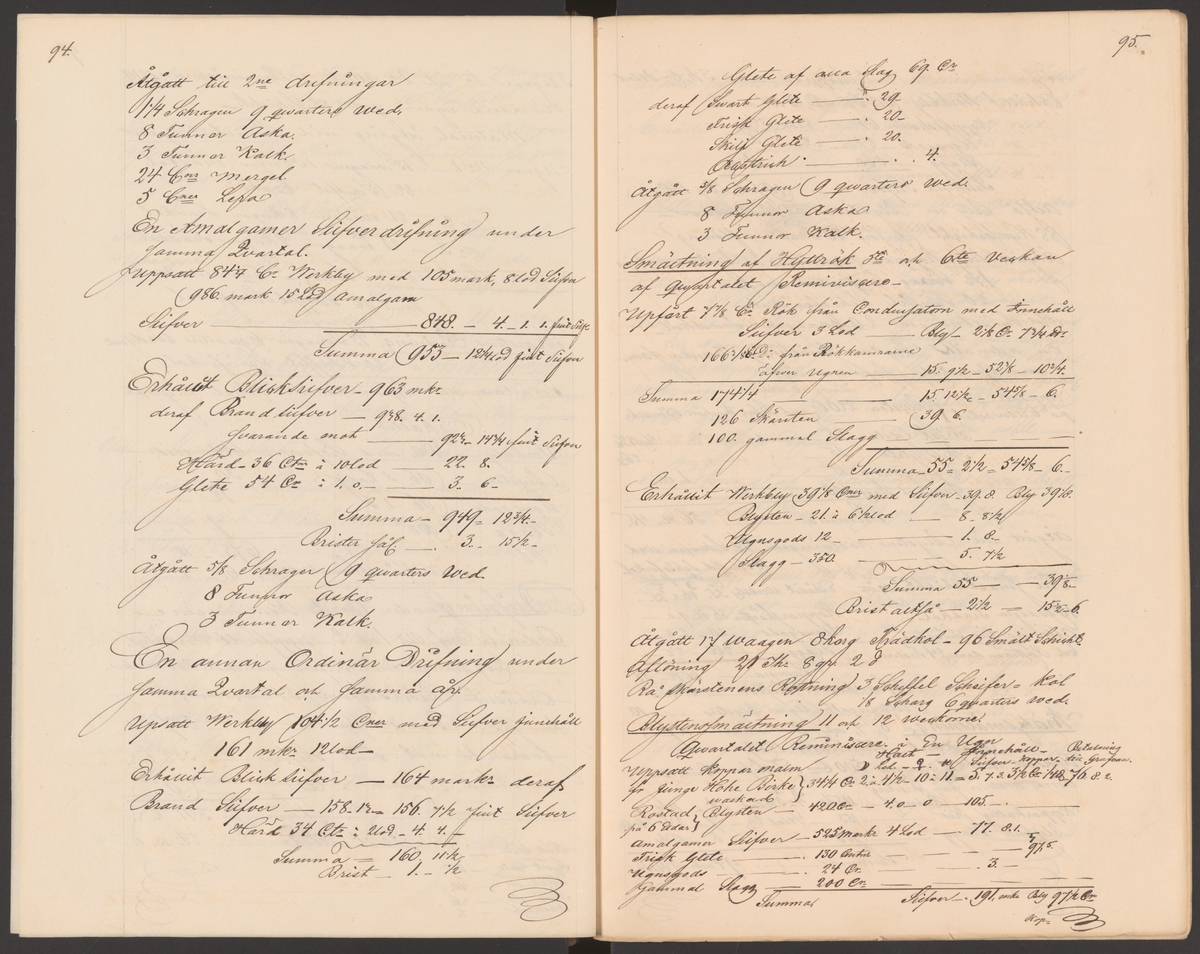 94.
Åtgått till 2ne drifningar
1 1/4 Schragen 9 qwarters wed.
8 Tunnor Aska.
3 Tunnor Kalk.
24 Cner Mergel
5 Cner Lefa
En Amalgamer Silfverdrifning under
samma Qvartal.
Uppsatt 847 Cr Werkbly med 105 mark, 8 lod Silfver
(986. mark 15 Lod Amalgam
Silfver 848. - 4. - 1. 1. fint Silfr
Summa (953 - 12 1/4 lod fint Silfver
Erhållit Blicksilfver - 963 mkr
deraf Brand silfver - 938. 4. 1.
svarande mot 923. - 14 3/4 fint Silfver
Härd - 36 Ctnr à 10 lod 22. 8.
Glete 54 Cr à 1. 0. - 3. 6 -
Summa - 949 - 12 3/4 -
Brister så 3. - 15 1/2 -
Åtgått 5/8 Schrager (9 qwarters Wed.
8 Tunnor Aska
3 Tunnor Kalk.
En annan Ordinär Drifning under
samma Qvartal och samma år.
Upsatt Werkbly 104 1/2 Cner med Silfver innehåll
161 mkr 12 lod -
Erhållit Blick silfver - 164 markr deraf
Brand Silfver - 158. 13. - 156. 7 1/2 fint Silfver
Härd 34 Ctr à 2 lod - 4. 4. -
Summa = 160, 11 1/2
Brist - 1. - 1/2
95.
Glete af alla slag 69 Cr
deraf Swart Glete - 29
Frisk Glete - 20 -
Skilj Glete - 20.
4.
Åtgått 5/8 Schragen (9 qwarters wed.
8 Tunnor Aska
3 Tunnor Kalk.
Smältning af Hyttrök 5te och 6te veckan
af qwartalet Reminiscere -
Upfört 7 7/8 Cr Rök från Condensatorn med Innehåll
Silfver 3 Lod - Bly - 2 1/8 Cr 7 3/4
från Rökkamrarne
öfver ugnen 15. 9 1/2 - 52 1/8 - 10 3/4.
Summa 174 1/4 15. 12 1/2 - 54 5/8 - 6.
126 Skärsten (39. 6.
100. gammal Slagg
Summa 55 = 2 1/2 = 54 5/8 - 6 -
Erhållit Werkbly (39 1/8 Cner med Silfver - 39. 8 Bly 39 1/8.
Blysten - 21. à 6 1/2 lod - 8 - 8 1/2
Ugnsgods 12 - 1. 8 -
Slagg - 350. 5. 7 1/2
Summa 55 - 39 1/8 -
Brist altså - 2 1/2 = 15 1/2 - 6
Åtgått 17 waagen 8 korg Trädkol - 96 Smält Schicht
Aflöning 21 Thr 8 gr. 2 d
Rå skärstenens Rostning 3 Scheffel Schiefer = kol
1/8 Scharg 6 qwarters wed.
Blystenssmältning 11 och 12 weckorne
Qwartalet Reminiscere i En Ugn
Halt - Innehåll - Betalning
lod - Silfver - Koppar - till Grufvan.
Uppsatt Koppar malm
fr Junge Hohe Birke
waskad
Rostad Blysten - 420 Cr - 4. 0 - 0 105. -
på 6 eldar
Amalgamer Silfver - 525 markr 4 Lod - 77. 8. 1.
Frisk Glete - 130 Cntnr 97. 5
Ugnsgods - 24 Cr. 3. -
Gammal Slagg 200 Cr
Summa Silfver - 191. mrk Bly 97 1/2 Cr
Kop=